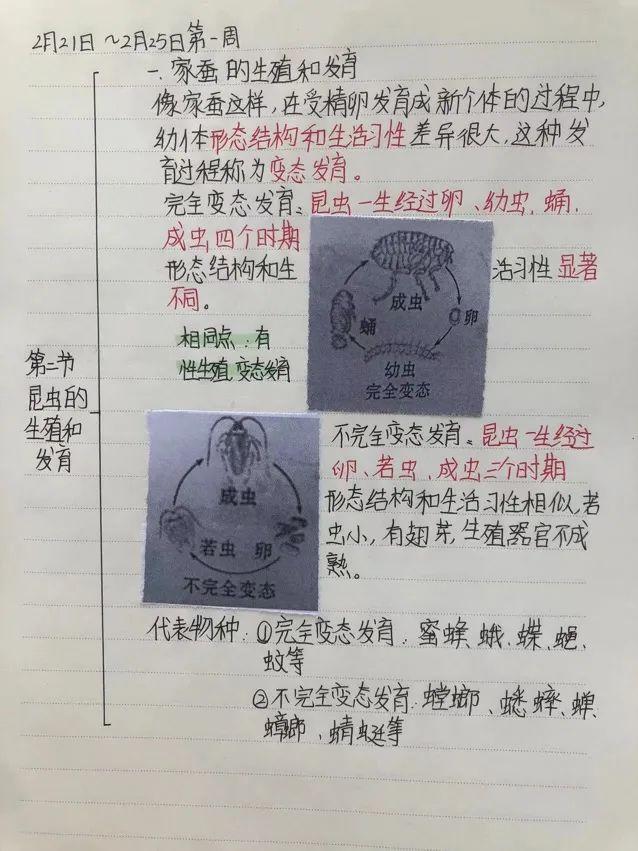 2月21日～2月25日第一周
一、家蚕的生殖和发育
像家蚕这样，在受精卵发育成新个体的过程中，
幼体形态结构和生活习性差异很大，这种发
育过程称为变态发育。
完全变态发育：昆虫一生经过卵、幼虫、蛹、
成虫四个时期
形态结构和生活习性显著
不同。
成虫
卵
蛹
幼虫
完全变态
相同点：有
性生殖，变态发育
第二节
昆虫的
生殖和
发育
不完全变态发育：昆虫一生经过
卵、若虫、成虫三个时期
形态结构和生活习性相似，若
虫小，有翅芽，生殖器官不成
熟。
成虫
若虫 卵
不完全变态
代表物种：①完全变态发育：蜜蜂、蛾、蝶、蝇、
蚊等
②不完全变态发育：螳螂、蟋蟀、蝉、
蟑螂、蜻蜓等